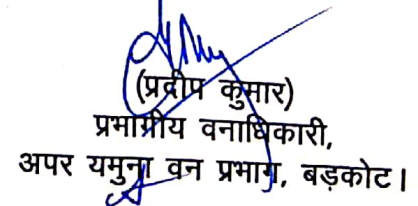 (प्रदीप कुमार)
प्रभागीय वनाधिकारी,
अपर यमुना वन प्रभाग, बड़कोट।